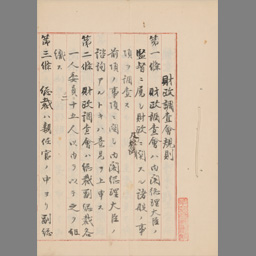 財政調査會規則
第一條 財政調査會ハ内閣總理大臣ノ
監督ニ屬シ財政ニ關スル諸般ノ事
項ヲ調査ス
前項ノ事項ニ關シ内閣總理大臣ノ
諮詢アルトキハ意見ヲ上申ス
第二條 財政調査會ハ總裁副總裁各
一人委員十五人以内ヲ以テ之ヲ組
織ス
第三條 總裁ハ親任官ノ中ヨリ副總